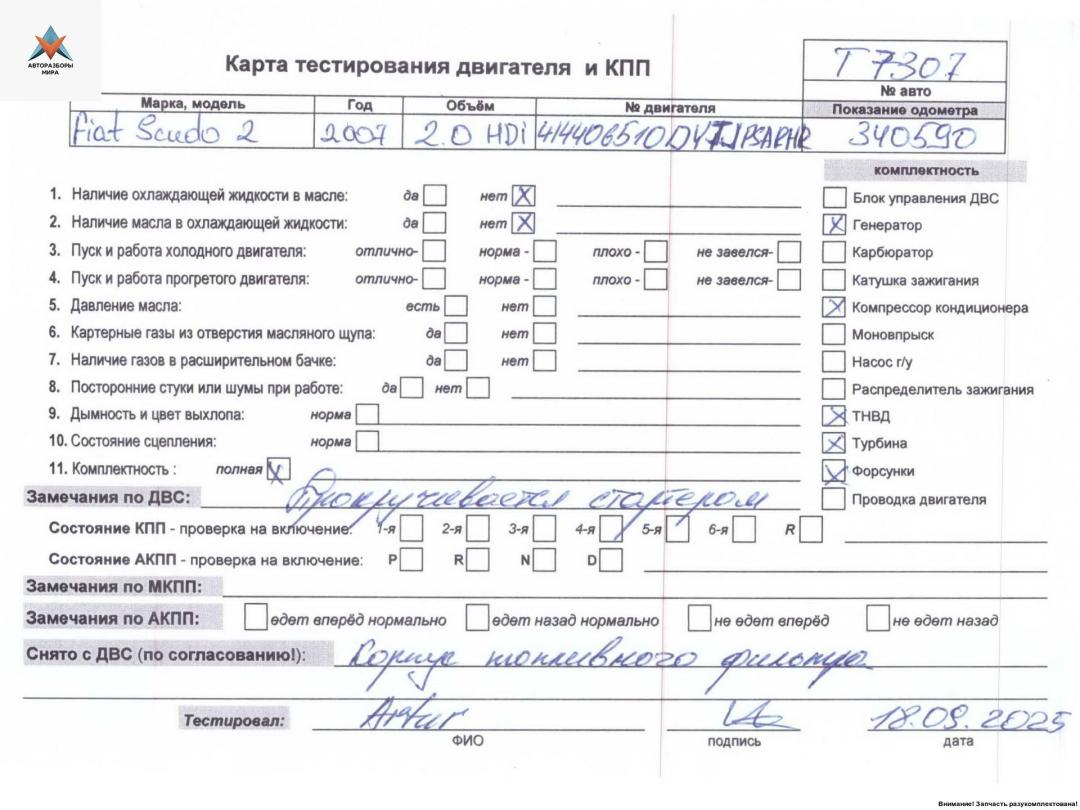 АВТОРАЗБОРЫ
МИРА
Карта тестирования двигателя и КПП
T 7307
№ авто
Марка, модель Год Объём № двигателя Показание одометра
Fiat Scudo 2 2007 2.0 HDi 340590
комплектность
1. Наличие охлаждающей жидкости в масле: да нет X
Блок управления ДВС
2. Наличие масла в охлаждающей жидкости: да нет X
X Генератор
3. Пуск и работа холодного двигателя: отлично- норма - плохо - не завелся-
Карбюратор
4. Пуск и работа прогретого двигателя: отлично- норма - плохо - не завелся-
Катушка зажигания
5. Давление масла: есть нет
X Компрессор кондиционера
6. Картерные газы из отверстия масляного щупа: да нет
Моновпрыск
7. Наличие газов в расширительном бачке: да нет
Насос г/у
8. Посторонние стуки или шумы при работе: да нет
Распределитель зажигания
9. Дымность и цвет выхлопа: норма
X ТНВД
10. Состояние сцепления: норма
X Турбина
11. Комплектность : полная V
V Форсунки
Замечания по ДВС: Прокручивается стартером
Проводка двигателя
Состояние КПП - проверка на включение: 1-я 2-я 3-я 4-я 5-я 6-я R
Состояние АКПП - проверка на включение: P R N D
Замечания по МКПП:
Замечания по АКПП: едет вперёд нормально едет назад нормально не едет вперёд не едет назад
Снято с ДВС (по согласованию!): Корпус топливного фильтра
Тестировал: Artur 18.09.2025
ФИО подпись дата
Внимание! Запчасть разукомплектована!